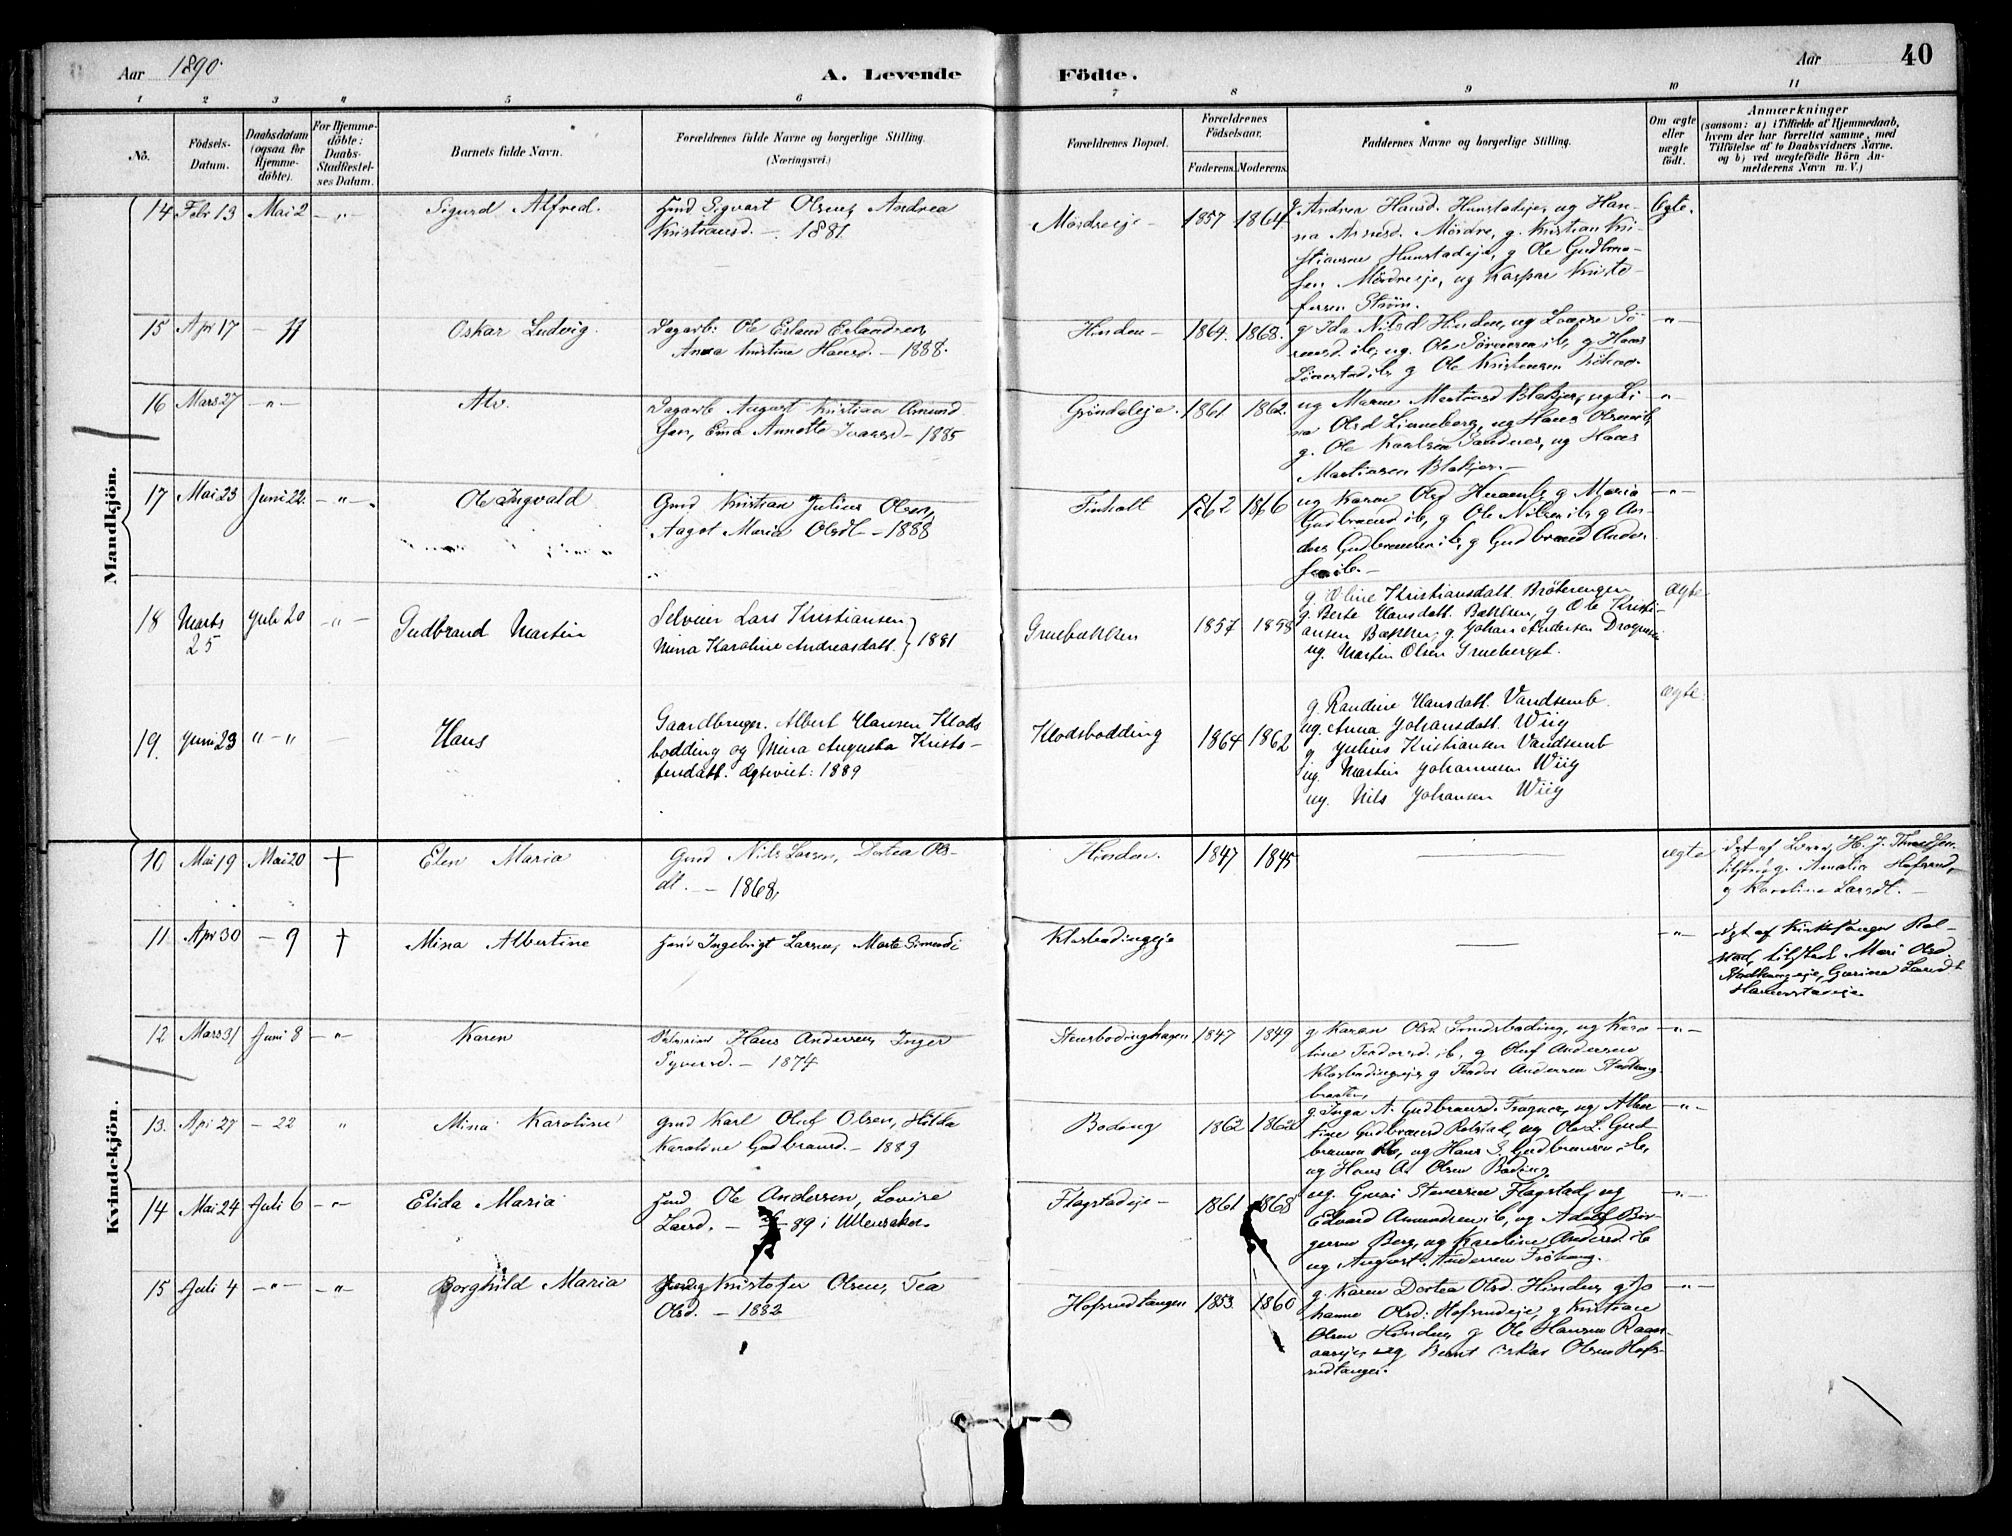 Aar 1890.
A. Levende Födte.
Aar
40
1 2 3 4 5 6 7 8 9 10 11
No.
Födsels-Datum.
Daabsdatum (ogsaa for Hjemme-döbte).
For Hjemme-döbte: Daabs-Stadfæstel-ses Datum.
Barnets fulde Navn.
Forældrenes fulde Navne og borgerlige Stilling.
(Næringsvei.)
Forældrenes Bopæl.
Forældrenes Födselsaar.
Faderens. Moderens.
Faddernes Navne og borgerlige Stilling.
Om ægte eller uægte født.
Anmærkninger
(saasom: a) i Tilfælde af Hjemmedaab,
hvem der har forrettet samme, med
Tilföielse af to Daabsvidners Navne.
og b) ved uægtefödte Börn An-
melderens Navn m. V.)
Mandkjön.
14 Febr 13 Mai 2 -"- Sigurd Alfred.
Hmd Sigvart Olsen, Andrea
Kristiansd. - 1881
Mördreeje - 1857 1864
g Andrea Hansd. Hunstadeje, ug Han-
na Arnesd. Mördre, g. Kristian Kri-
stiansen Hunstadeje, g Ole Gudbran-
sen Mördreeje, ug Kaspar Kristo-
fersen Ström.
Ægte.
15 Apr 17 - 11 Oskar Ludvig.
Dagarb. Ole Erland Erlandsen,
Anna Kristine Hansd. - 1888.
Hinden - 1864. 1868.
g Ida Nilsd Hinden, ug Lovise Sö-
rensd. ib, ug. Ole Sörensen ib, g Hans
g Ole Kristensen
-"-
16 Mars 27 -"- Alv.
Dagarb August Kristian Amund
sen, Ema Annette Ivarsd - 1885
Gröndaleje. 1861 1862
ug Maren Martinsd Blakjer, ug Li-
na Olsd Linneberg, ug Hans Olsen ib,
g. Ole Karlsen Sandnes, ug Hans
Martinsen Blakjer. -
"
17 Mai 23 Juni 22. -"- Ole Ingvald
Gmd Kristian Julius Olsen,
Aagot Maria Olsdt - 1888
Finholt 1862 1866
ug Karen Olsd Huner, g Maria
Gudbrandsd ib, g Ole Nilsen ib, g An-
ders Gudbransen ib, g Gudbrand Ander-
sen ib. -
-"-
18 Marts 25 Juli 20 -"- Gudbrand Martin
Selveier Lars Kristiansen
Mina Karoline Andreasdatt. } 1881
Gruebækken 1857 1858
g Oline Kristiansdatt. Bröterengen
g. Berte Hansdatt. Bækken, g Ole Kristi-
ansen Bækken, g. Johan Andersen Dragnes
ug. Martin Olsen Grueberget.
ægte
19. Juni 23 "-" - Hans
Gaardbruger. Albert Hansen Klods
bodding og Mina Augusta Kristo-
fersdatt. Ægteviet: 1889
Klodsbodding 1864 1862
g. Randine Hansdatt. Vandsemb
ug. Anna Johansdatt. Wiig
g. Julius Kristiansen Vandsemb
ug. Martin Johannesen Wiig
ug. Nils Johansen Wiig
ægte.
Kvindekjön.
10 Mai 19 Mai 20 † Elen Maria
Gmd Nils Larsen, Dortea Ols-
dt. - 1868,
Hinden. 1847 1845
ægte
döpt af Lærer, H. J.
g. Amalia Hofsrud,
g Karoline Larsdt. -
11 Apr 30 - 9 † Mina Albertine
Hmd Ingebrigt Larsen, Marte Simensd
Klosbodingeje
-"-
döpt af Kirkesanger Rol-
stad, tilstede Mari Olsd.
Gurine Larsdt
12 Mars 31 Juni 8 -"- Karen
Selveier Hans Andersen, Inger
Syversd. - 1874
Stensbodinghagen 1847 1849
g Karen Olsd Stensboding, ug Karo-
line Teodorsd. ib, g Oluf Andersen
Klosbodingeje g Teodor Andersen
braaten,
-"-
13. Apr 27 - 22 " Mina Karoline
Gmd Karl Oluf Olsen, Hilda
Karoline Gudbransd. - 1889
Boding 1862 1862
g. Inga A. Gudbransd. Fragner, ug Alber
tine Gudbransd Rolstad, ug Ole L. Gud
bransen ib, ug Hans S. Gudbransen ib,
ug Hans A. Olsen Boding,
-"-
14 Mai 24 Juli 6 -"- Elida Maria
Hmd Ole Andersen, Lovise
Larsd. - 89 i Ullensaker.
Flagstadeje - 1861 1868
ug. Guri Steversen Flagstad, ug
Edvard Amundsen ib, ug Adolf Bir-
gersen Berg, ug Karoline Andersd ib
ug August Andersen Fröhaug.
-"-
15 Juli 4 -"- -"- Borghild Maria
Kristofer Olsen, Tea
Olsd. - 1882
Hofsrudtangen 1853. 1860
g. Karen Dortea Olsd. Hinden, g Jo
hanne Olsd: Hofsrudeje, g Kristian
Olsen Hinden, g Ole Hansen Raan-
aaseje, ug Bernt Oskar Olsen Hofs-
rudtangen.
-"-